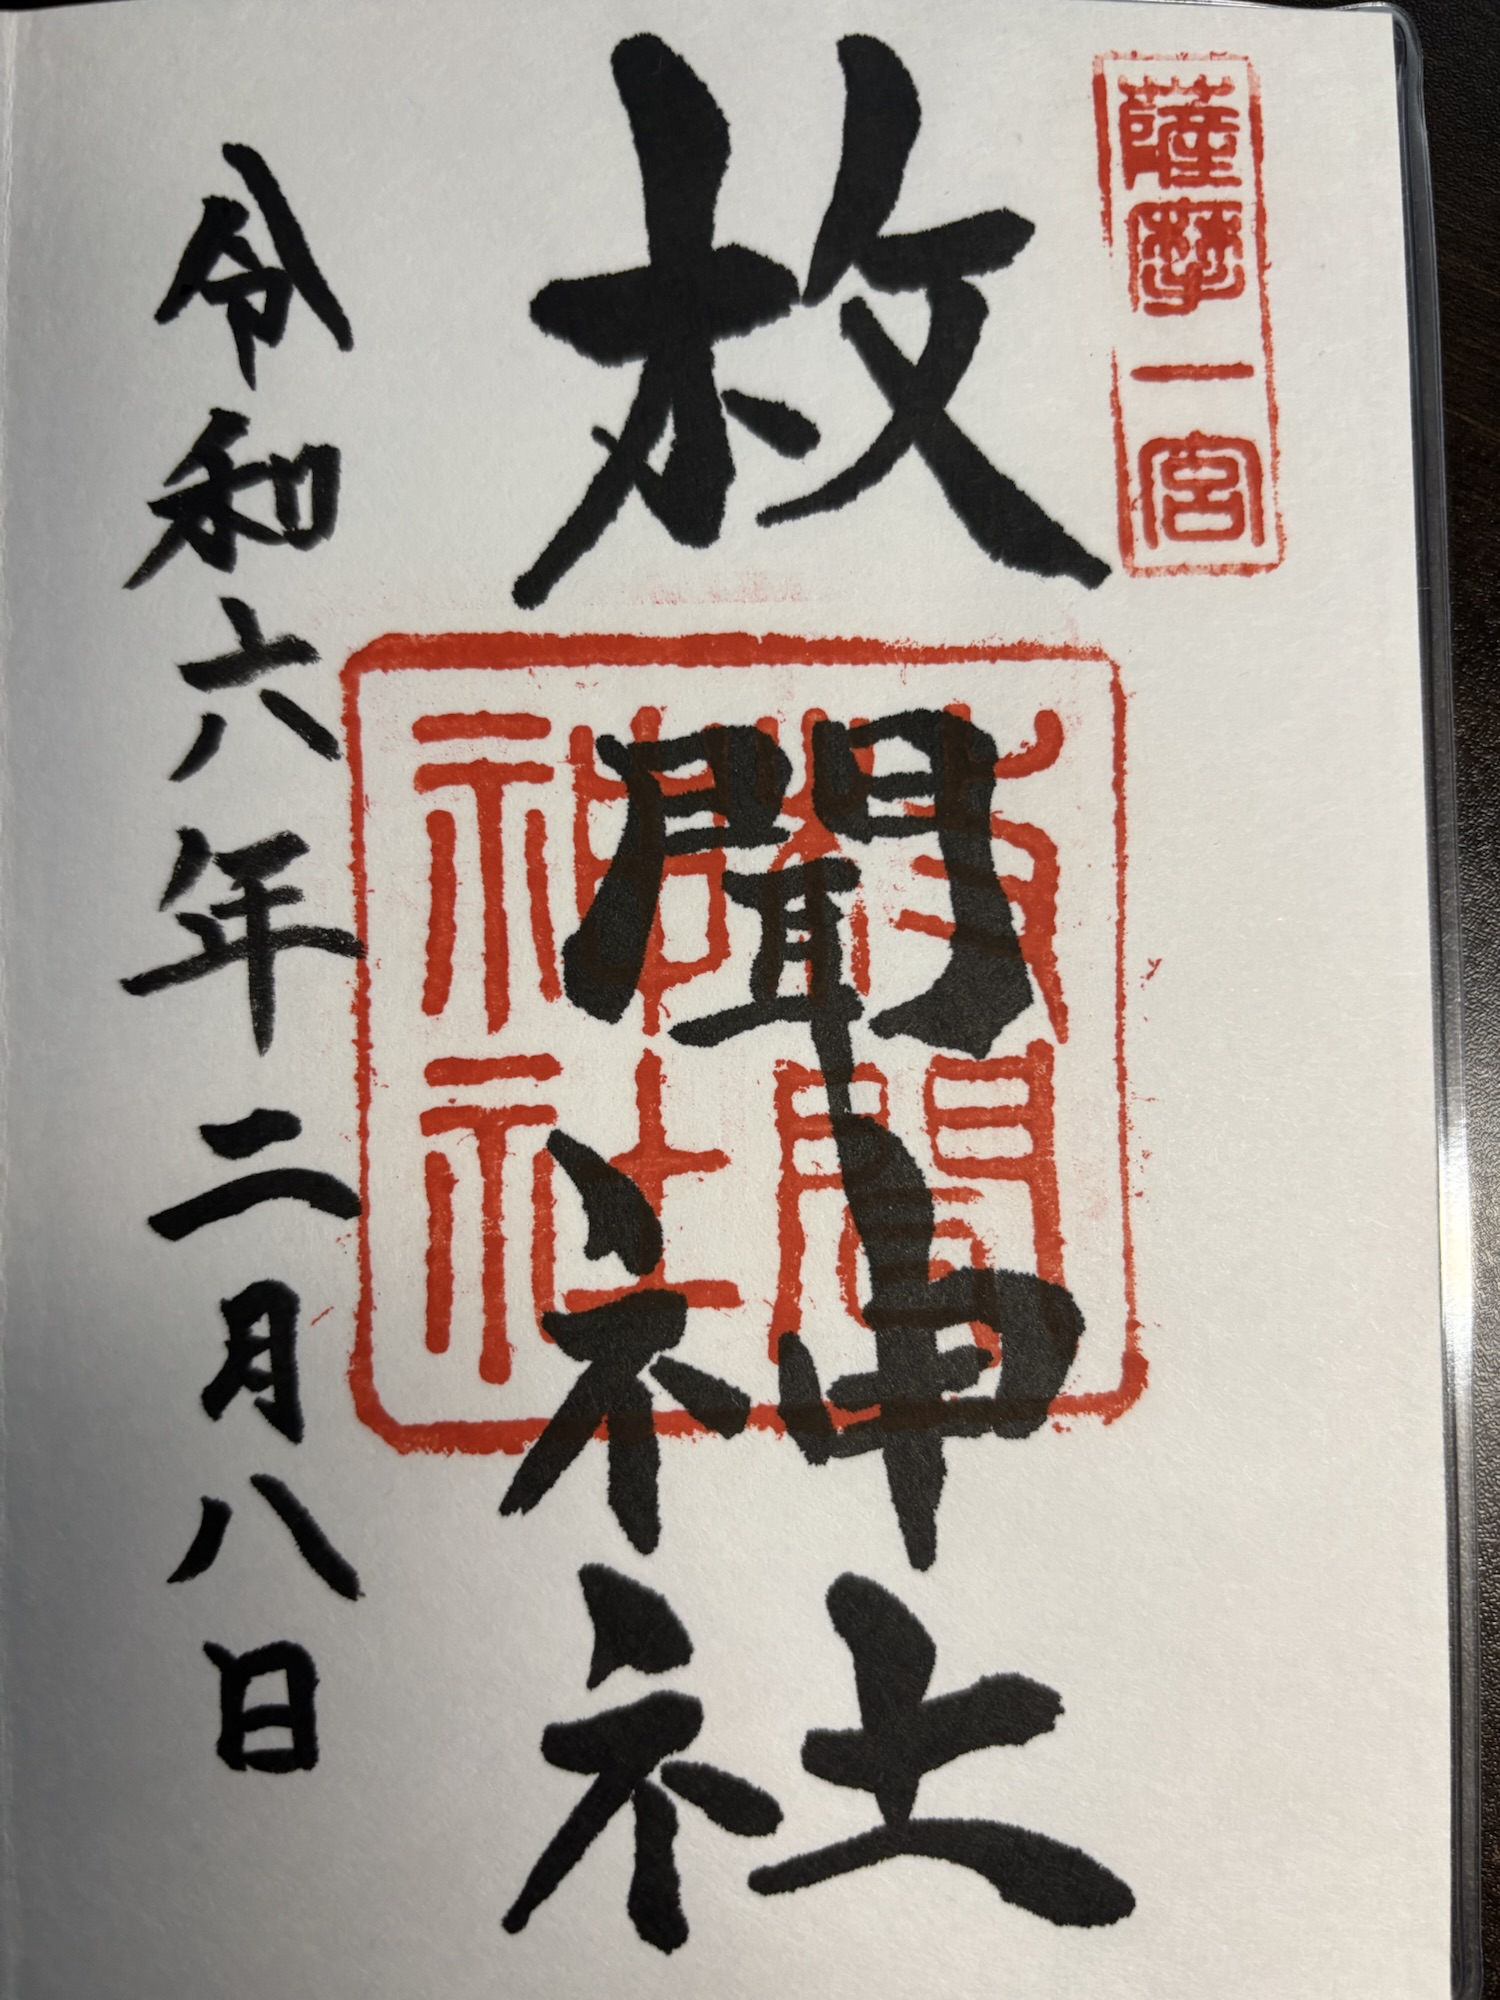 薩摩一宮
枚聞神社
枚聞
神社
令和六年二月八日